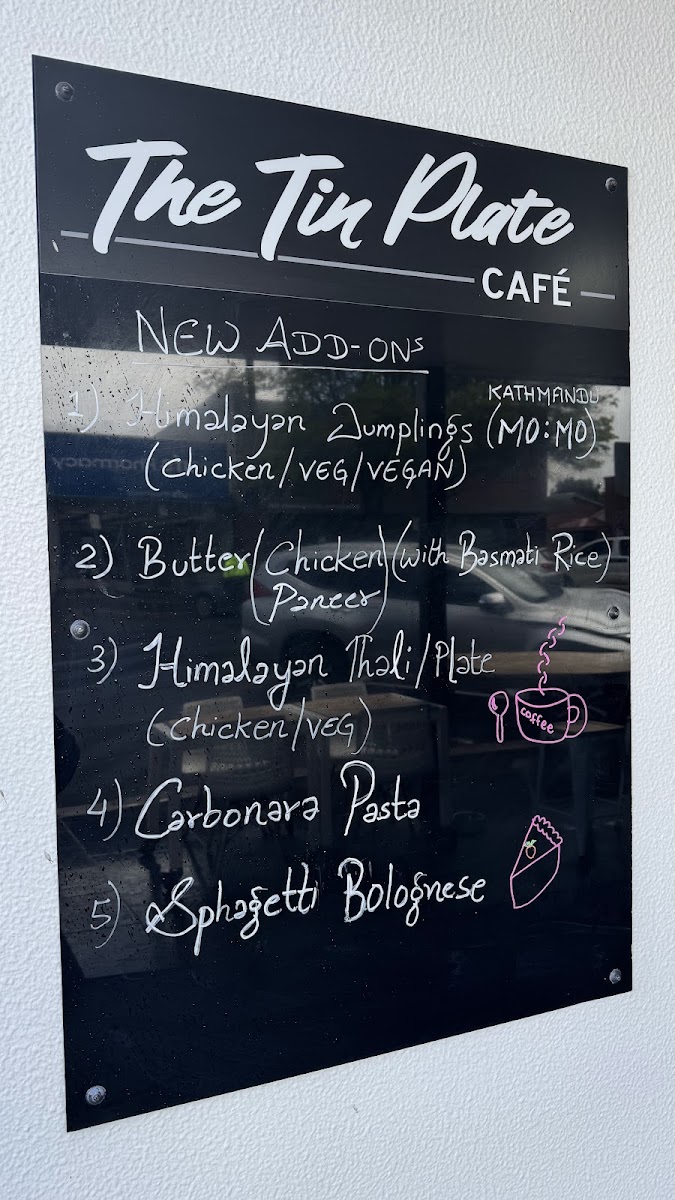 The Tin Plate
CAFÉ
NEW ADD-ONs
KATHMANDU
1) Himalayan Dumplings (MO:MO)
(chicken/VEG/VEGAN)
2) Butter (Chicken) (with Basmati Rice)
(Paneer)
3) Himalayan Thali/Plate
(Chicken/VEG)
coffee
4) Carbonara Pasta
5) Sphagetti Bolognese